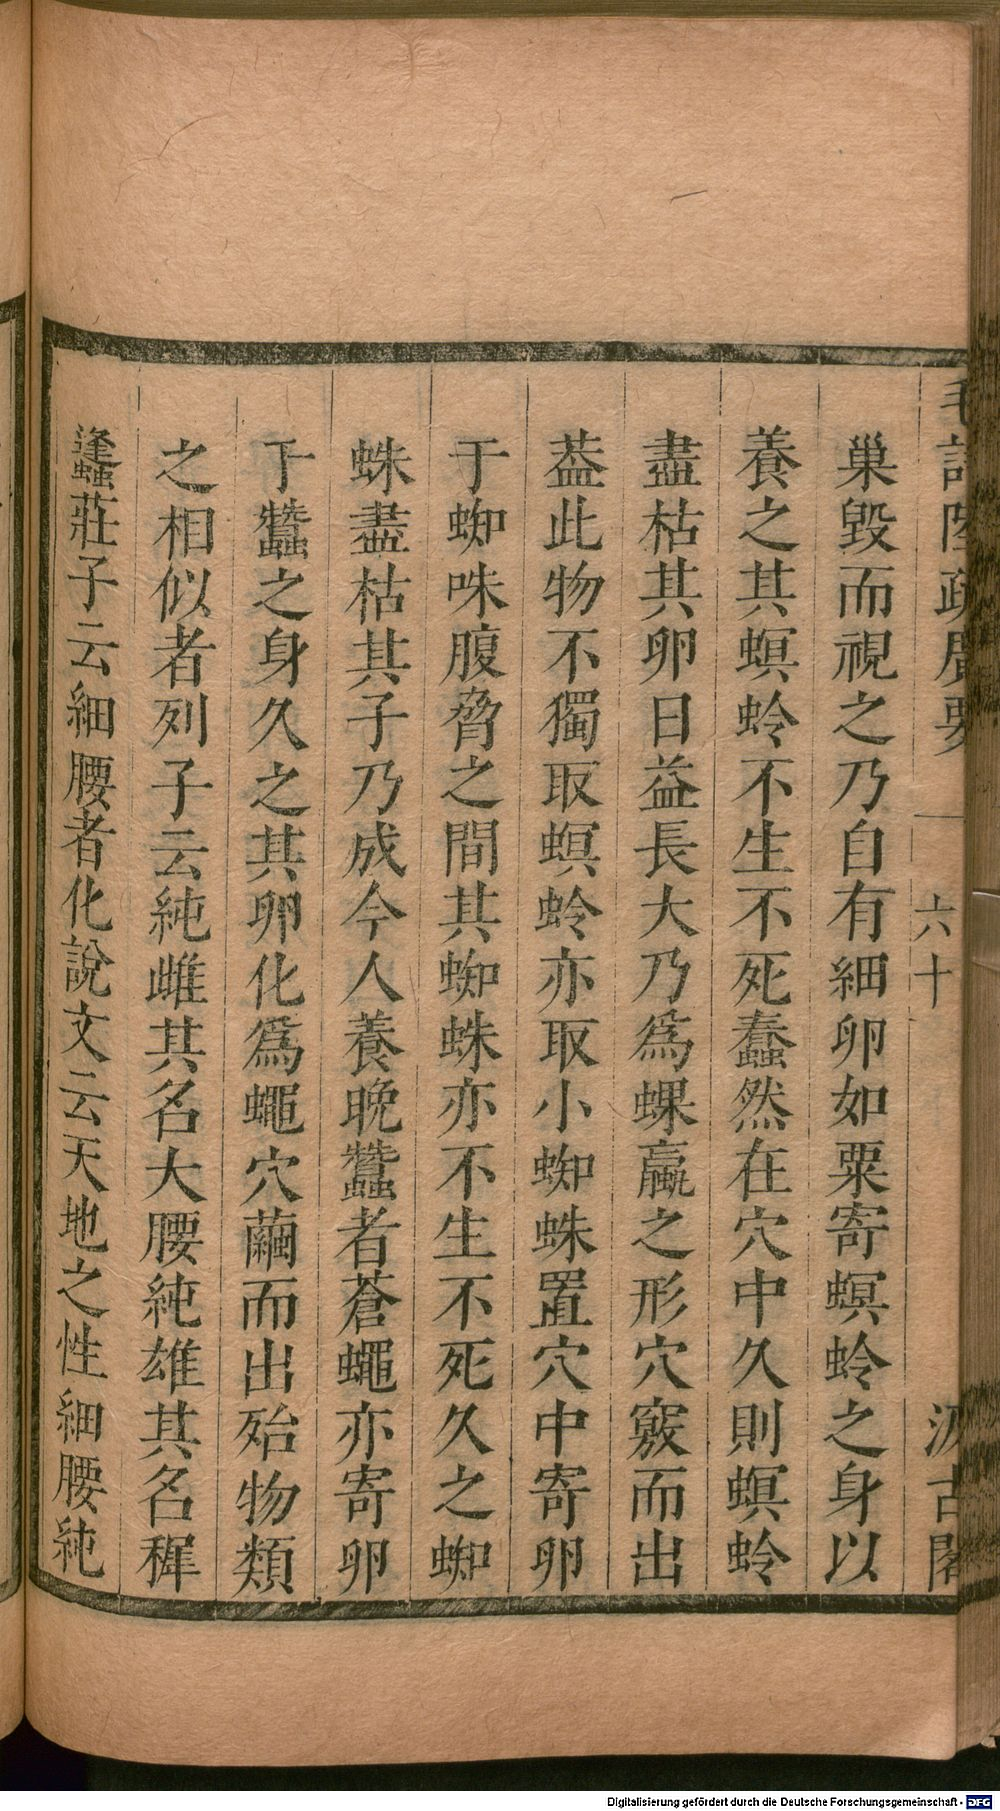 毛詩陸疏廣要 六十 汲古閣
巢毀而視之乃自有細卵如粟寄螟蛉之身以
養之其螟蛉不生不死蠢然在穴中久則螟蛉
盡枯其卵日益長大乃爲蜾蠃之形穴竅而出
葢此物不獨取螟蛉亦取小蜘蛛置穴中寄卵
于蜘蛛腹脅之間其蜘蛛亦不生不死久之蜘
蛛盡枯其子乃成今人養晚蠶者蒼蠅亦寄卵
于蠶之身久之其卵化爲蠅穴繭而出殆物類
之相似者列子云純雌其名大腰純雄其名稺
䗬莊子云細腰者化說文云天地之性細腰純
Digitalisierung gefördert durch die Deutsche Forschungsgemeinschaft - DFG